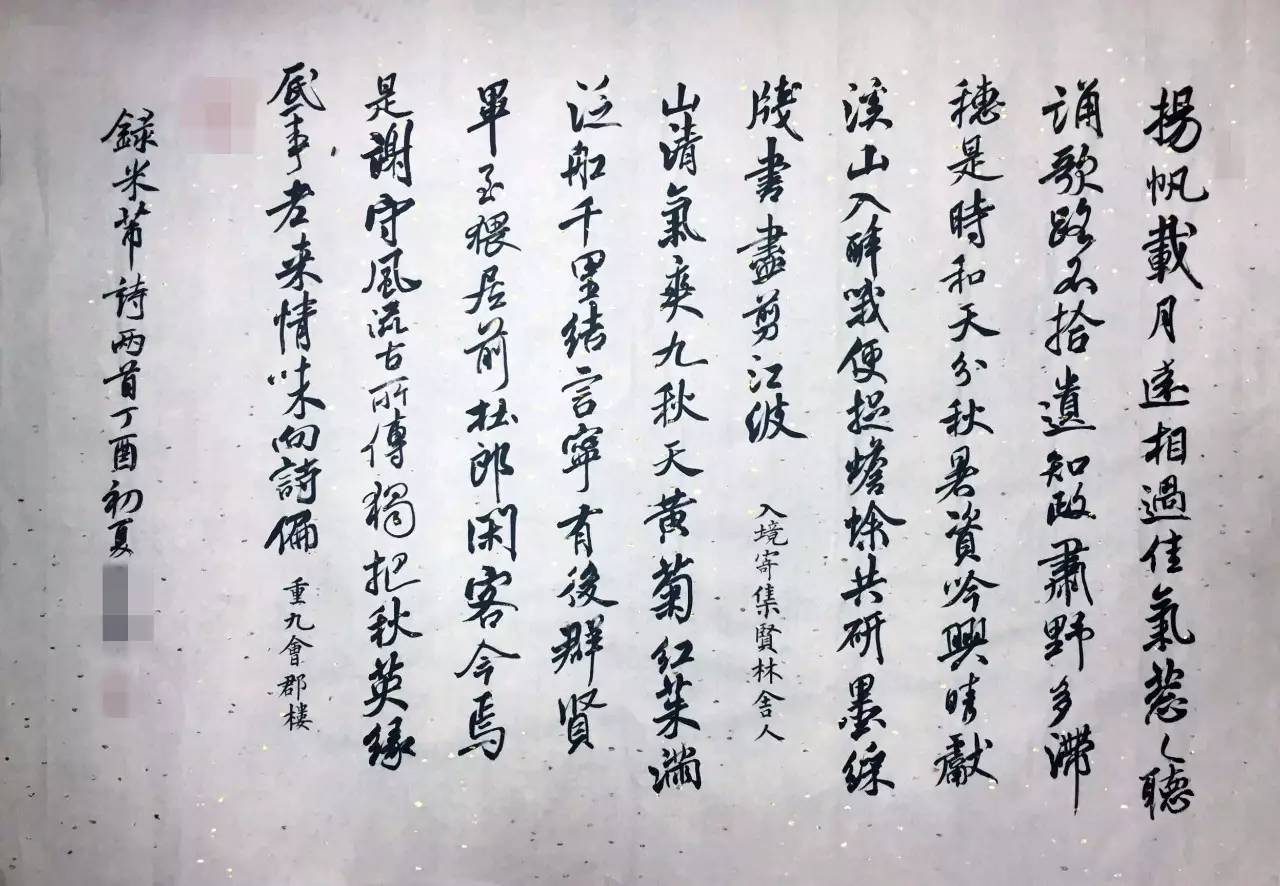 揚帆載月遠相過佳氣葱〻聽
誦歌路不拾遺知政肅野多滯
穗是時和天分秋暑資吟興晴獻
溪山入醉哦便捉蟾蜍共研墨綵
牋書盡剪江波
入境寄集賢林舍人
山清氣爽九秋天黃菊紅茱滿
泛船千里結言寧有後群賢
畢至猥居前杜郎閑客今焉
是謝守風流古所傳獨把秋英緣
底事老來情味向詩偏
重九會郡樓
録米芾詩兩首丁酉初夏